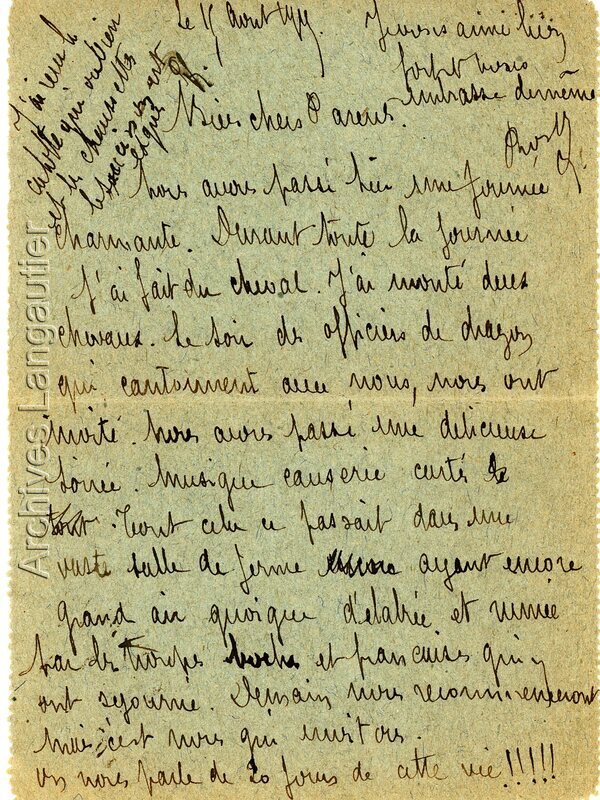 Le 15 Aout 1915.
Je vous aime bien
fort et vous
embrasse de même
J'ai reçu la
culotte qui va bien
et les chemisettes
Mes chers Parents.
Nous avons passé hier une journée
charmante. Durant toute la journée
j'ai fait du cheval. J'ai monté deux
chevaux. Le soir des officiers de dragon
qui cantonnent avec nous, nous ont
invité. Nous avons passé une délicieuse
soirée. Musique causerie cartes
tout. Tout cela ce passait dans une
vaste salle de ferme ayant encore
grand air quoique délabrée et ruinée
par les troupes boches et francaises qui y
ont sejourné. Demain nous recommenceront
mais c'est nous qui invitons.
on nous parle de 20 jours de cette vie !!!!!
Archives Langautier